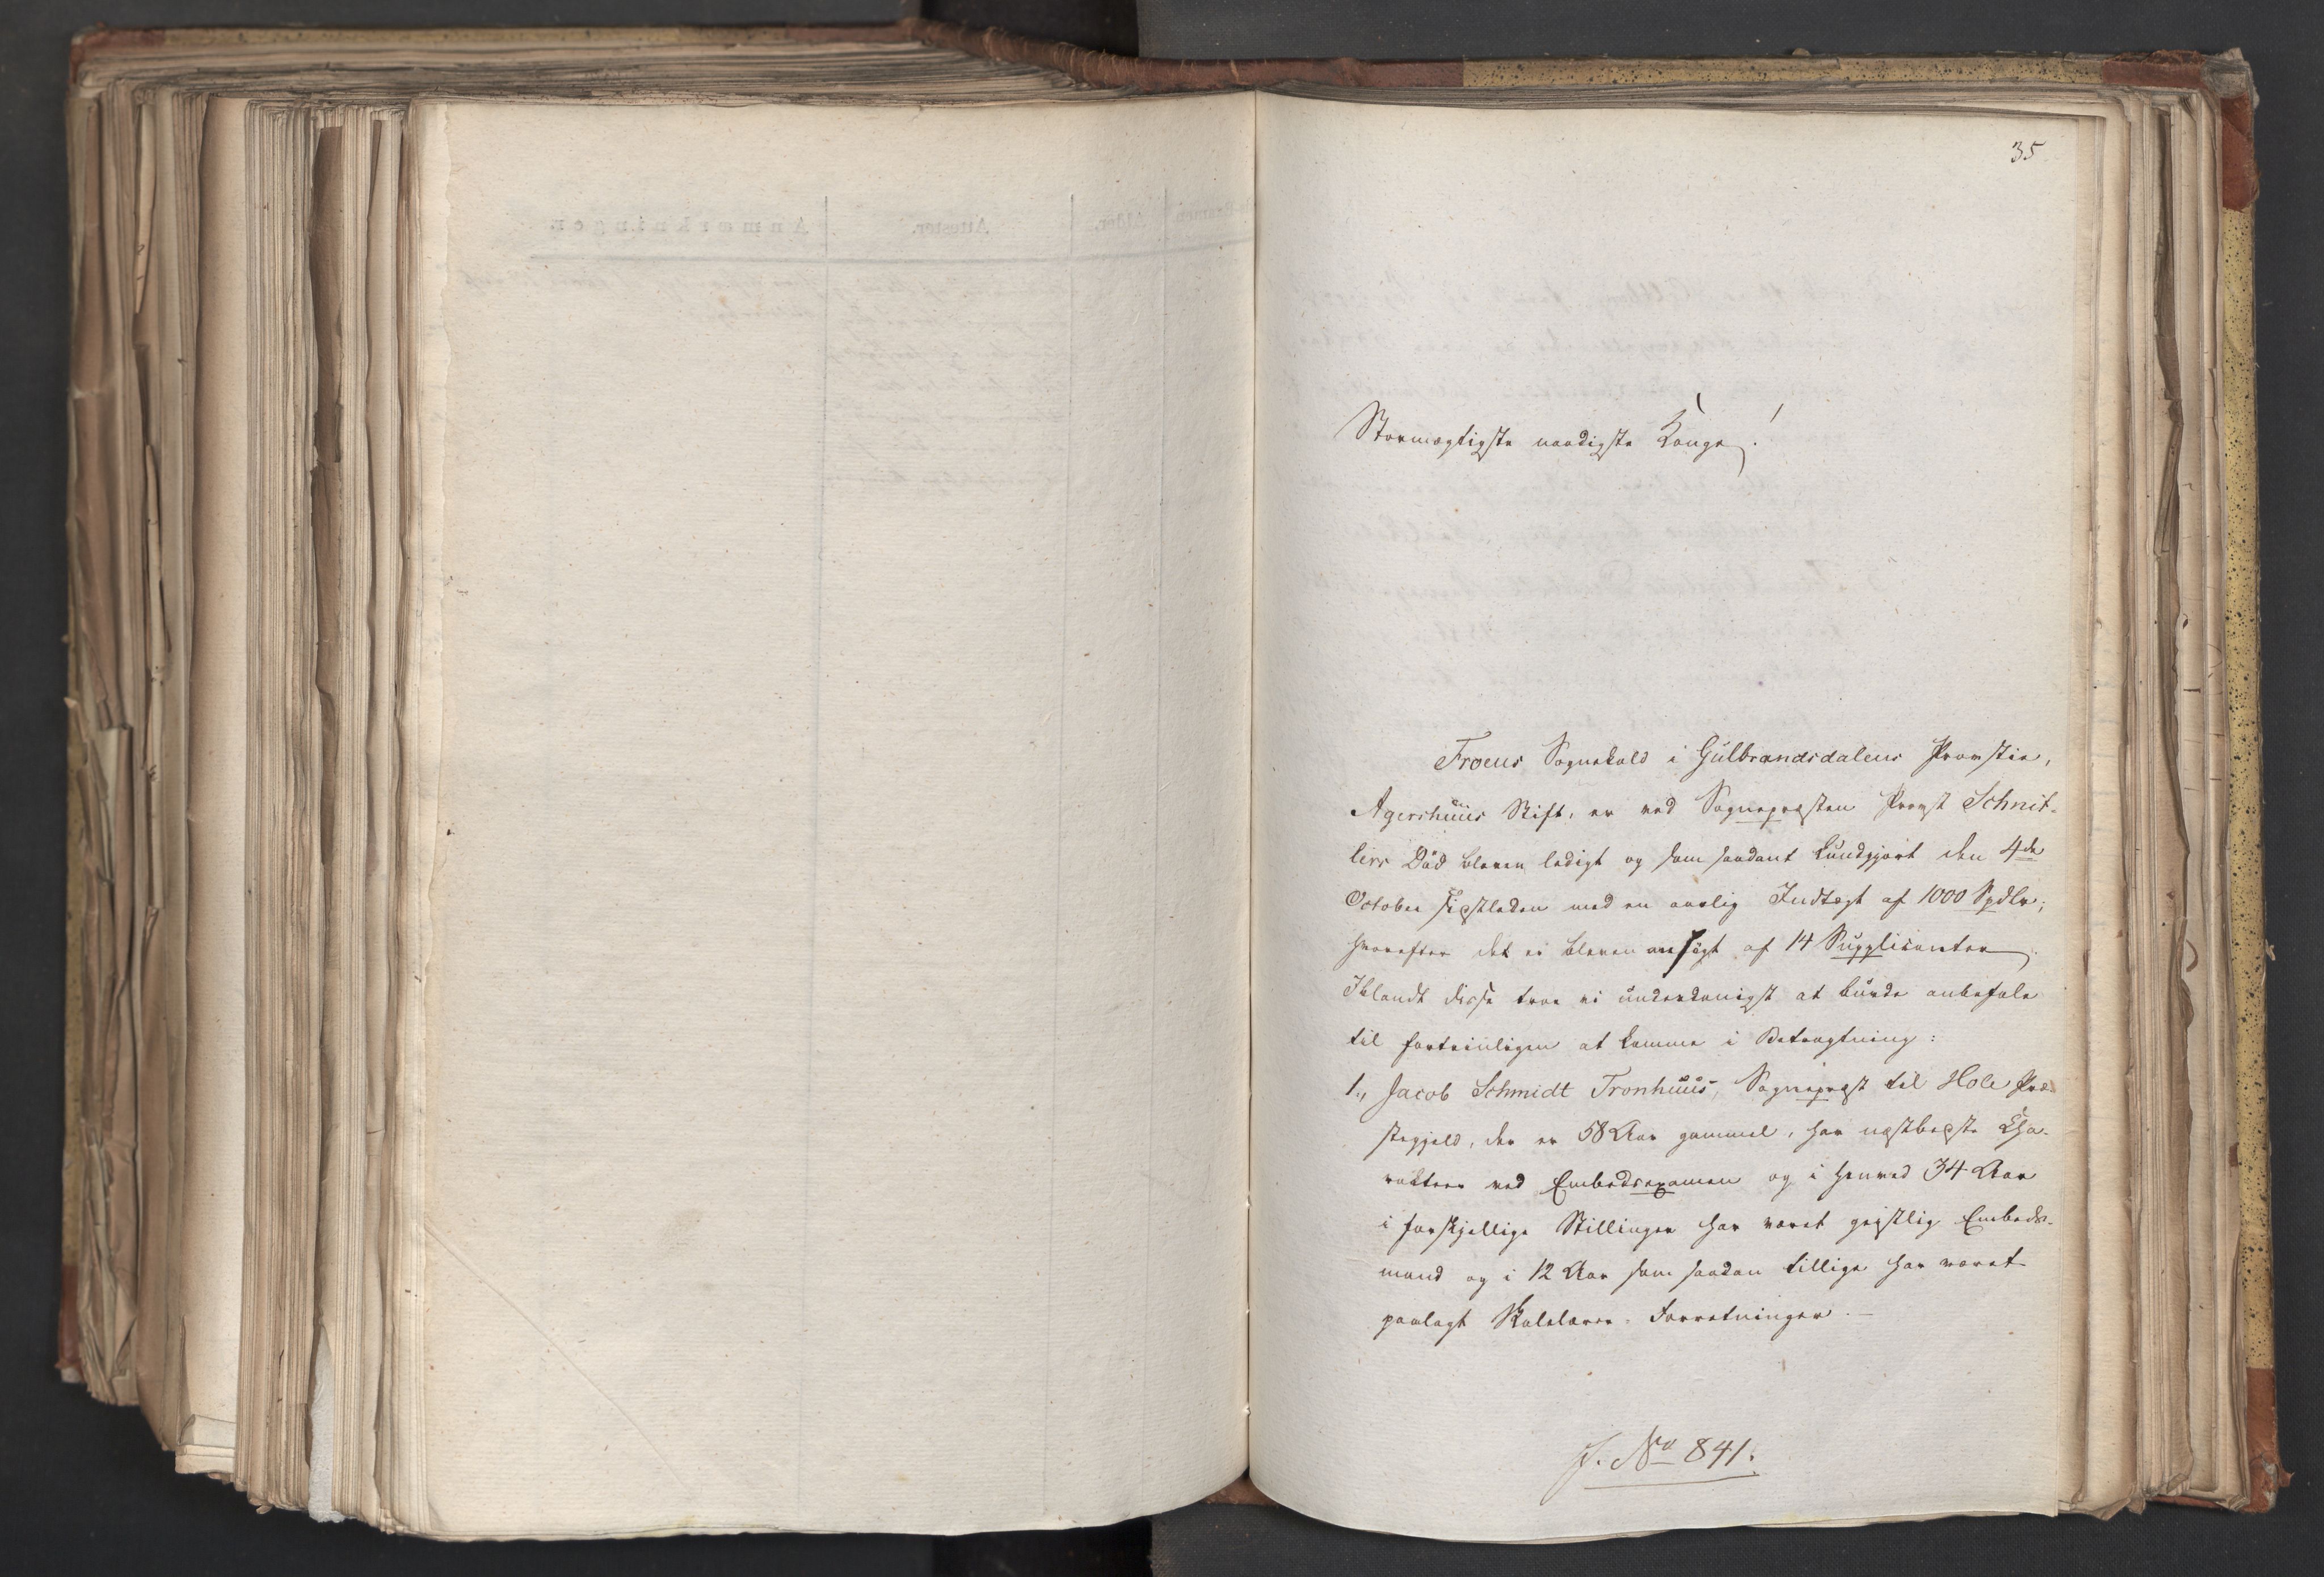 35
Stormægtigste naadigste Konge!
Froens Sognekald i Gulbrandsdalens Provstie,
Agershuus Stift, er ved Sognepræsten Provst Schnit-
lers Död bleven ledigt og som saadant kundgjort den 4de
October sidstleden med en aarlig Indtægt af 1000 Spdlr;
hvorefter det er bleven ansögt af 14 Supplicanter.
Iblandt disse troe vi underdanigst at burde anbefale
til fortrinligen at komme i Betragtning:
1., Jacob Schmidt Tronhuus, Sognepræst til Hole Præ-
stegjeld, der er 58 Aar gammel, har næstbedste Cha-
rakteer ved Embedsexamen og i henved 34 Aar
i forskjellige Stillinger har været geistlig Embeds-
mand og i 12 Aar som saadan tillige har været
paalagt Skolelærer-Forretninger.
J. No 841.